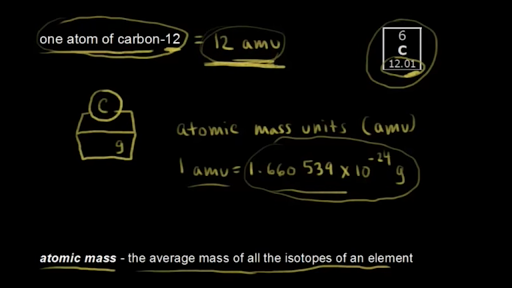 one atom of carbon-12 = 12 amu
6
C
12.01
C
g
atomic mass units (amu)
1 amu = 1.660 539 × 10⁻²⁴ g
atomic mass - the average mass of all the isotopes of an element